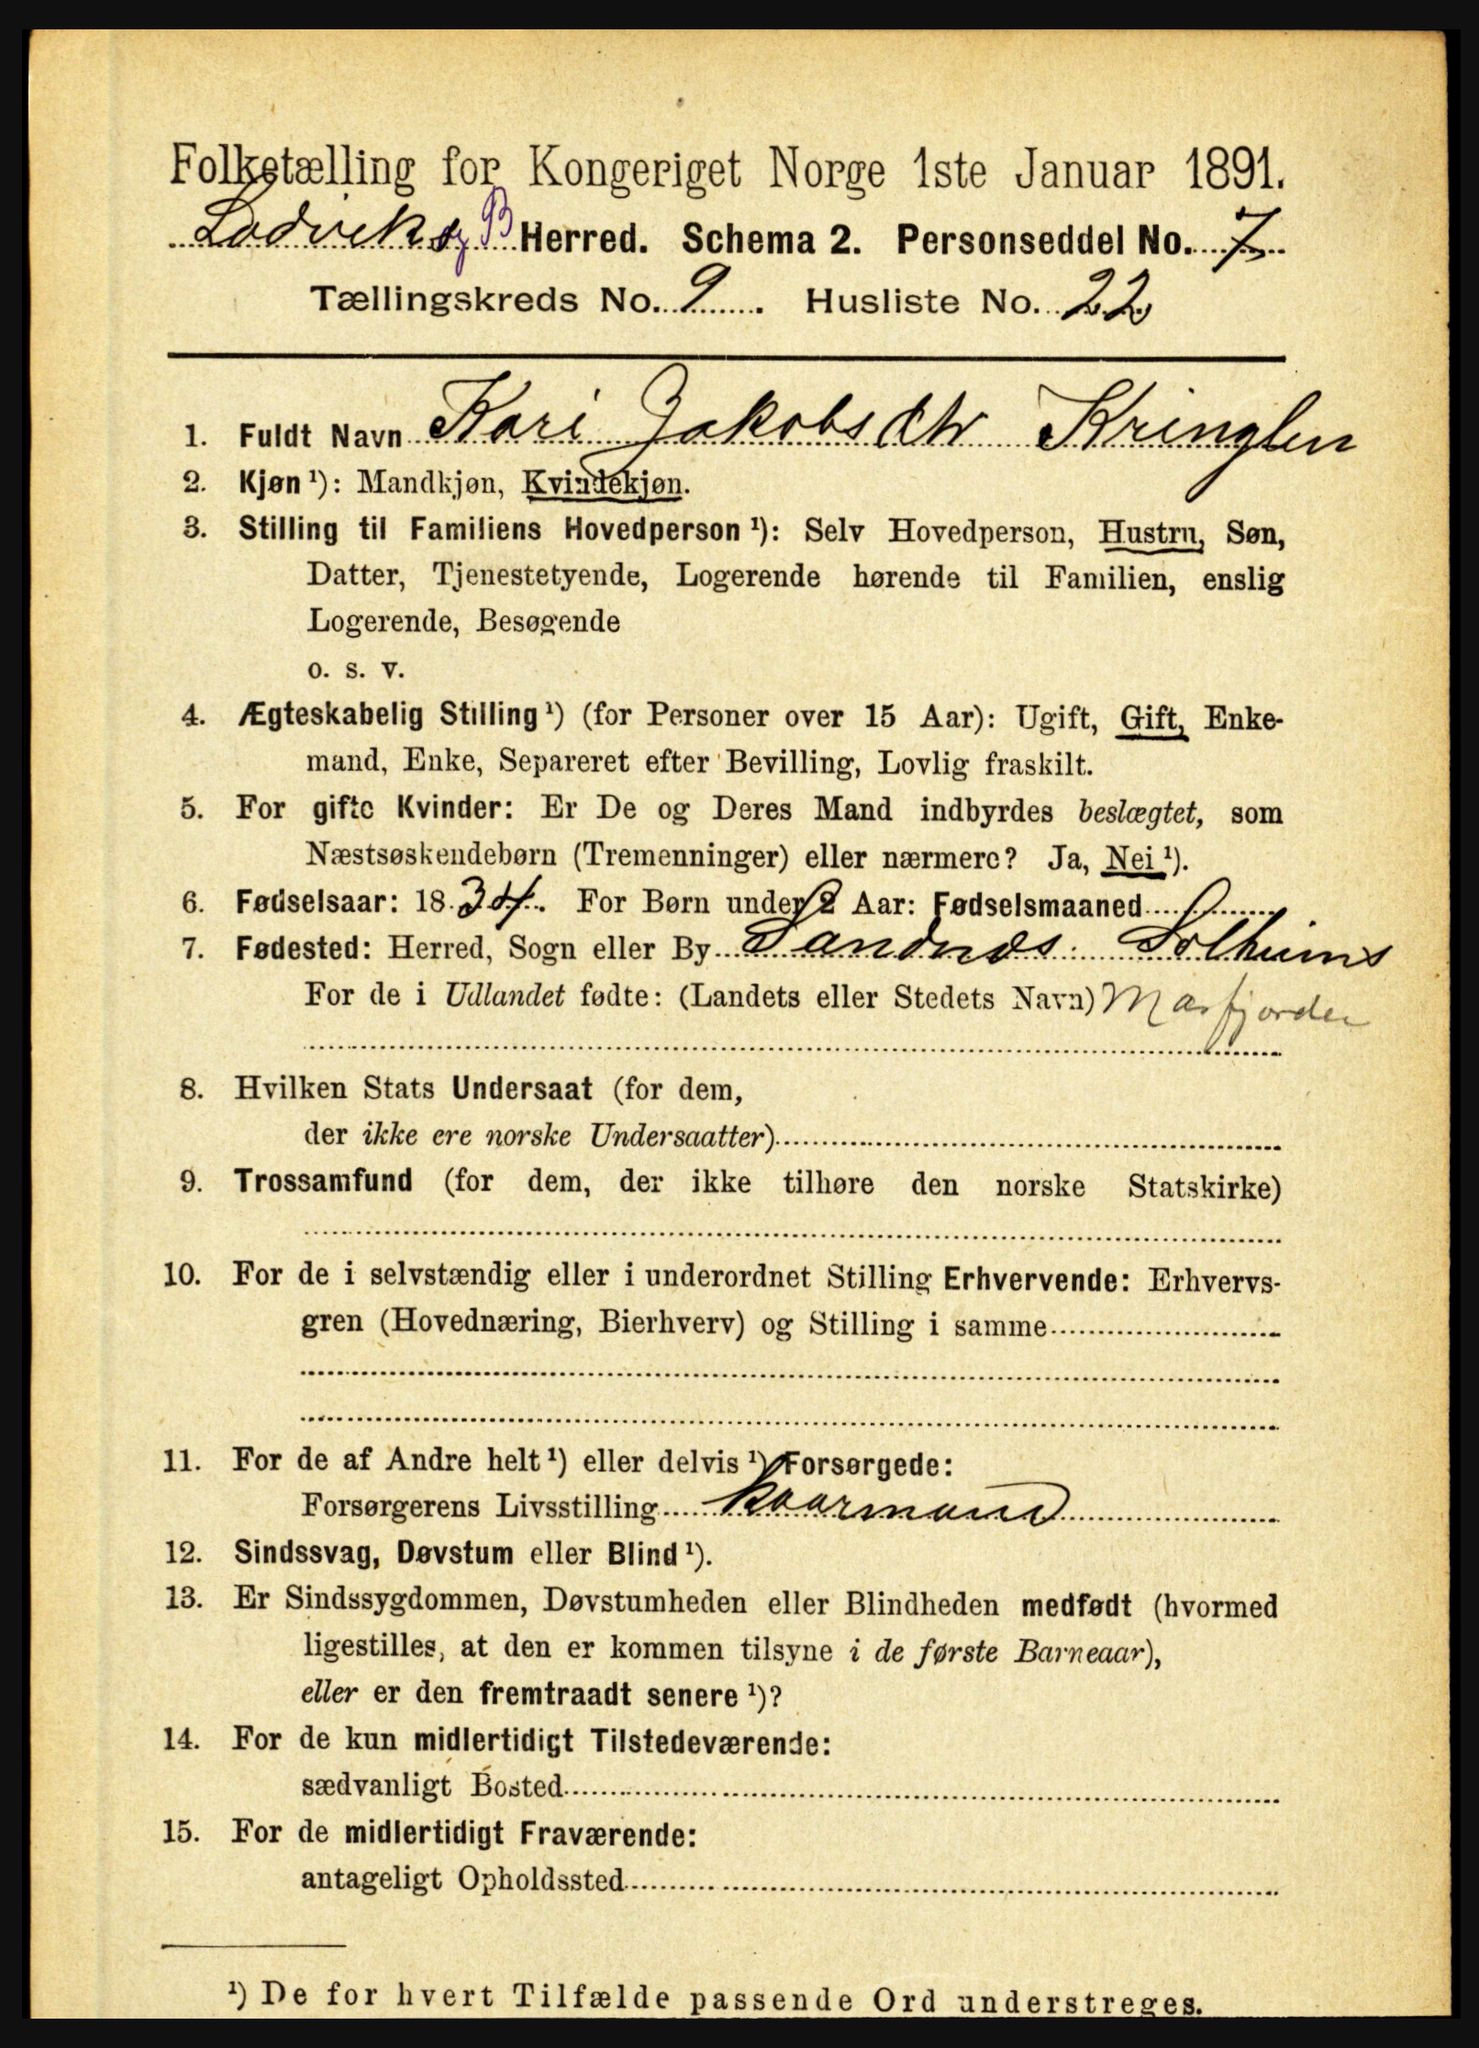 Folketælling for Kongeriget Norge 1ste Januar 1891.
Ladviks og B Herred. Schema 2. Personseddel No. 7
Tællingskreds No. 9. Husliste No. 22
1. Fuldt Navn Kari Jakobsdtr Kringlen
2. Kjøn ¹): Mandkjøn, Kvindekjøn.
3. Stilling til Familiens Hovedperson ¹): Selv Hovedperson, Hustru, Søn,
Datter, Tjenestetyende, Logerende hørende til Familien, enslig
Logerende, Besøgende
o. s. v.
4. Ægteskabelig Stilling ¹) (for Personer over 15 Aar): Ugift, Gift, Enke-
mand, Enke, Separeret efter Bevilling, Lovlig fraskilt.
5. For gifte Kvinder: Er De og Deres Mand indbyrdes beslægtet, som
Næstsøskendebørn (Tremenninger) eller nærmere? Ja, Nei ¹).
6. Fødselsaar: 1834. For Børn under 2 Aar: Fødselsmaaned
7. Fødested: Herred, Sogn eller By Sandnæs Solheims
For de i Udlandet fødte: (Landets eller Stedets Navn) Masfjorden
8. Hvilken Stats Undersaat (for dem,
der ikke ere norske Undersaatter)
9. Trossamfund (for dem, der ikke tilhøre den norske Statskirke)
10. For de i selvstændig eller i underordnet Stilling Erhvervende: Erhvervs-
gren (Hovednæring, Bierhverv) og Stilling i samme
11. For de af Andre helt ¹) eller delvis ¹) Forsørgede:
Forsørgerens Livsstilling Kaarmand
12. Sindssvag, Døvstum eller Blind ¹).
13. Er Sindssygdommen, Døvstumheden eller Blindheden medfødt (hvormed
ligestilles, at den er kommen tilsyne i de første Barneaar),
eller er den fremtraadt senere ¹)?
14. For de kun midlertidigt Tilstedeværende:
sædvanligt Bosted
15. For de midlertidigt Fraværende:
antageligt Opholdssted
¹) De for hvert Tilfælde passende Ord understreges.